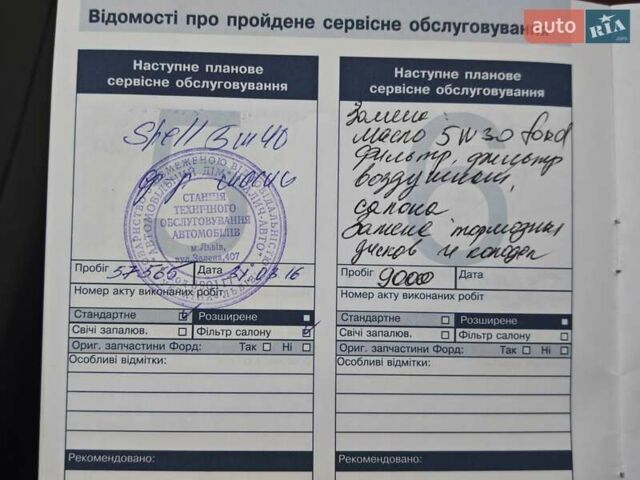 Відомості про пройдене сервісне обслуговування
auto RIA .com
Наступне планове
сервісне обслуговування
Shell 5W40
СТАНЦІЯ
ТЕХНІЧНОГО
ОБСЛУГОВУВАННЯ
АВТОМОБІЛІВ
м.Львів,
вул.Зелена,407
Пробіг 57566 Дата 31.03.16
Номер акту виконаних робіт
Стандартне Розширене
Свічі запалюв. Фільтр салону
Ориг. запчастини Форд: Так Ні
Особливі відмітки:
Рекомендовано:
Наступне планове
сервісне обслуговування
Замена
масло 5W30 Ford
Фильтр, фильтр
воздушный,
салона
Замена тормозных
дисков и колодок
Пробіг 9000 Дата
Номер акту виконаних робіт
Стандартне Розширене
Свічі запалюв. Фільтр салону
Ориг. запчастини Форд: Так Ні
Особливі відмітки:
Рекомендовано: